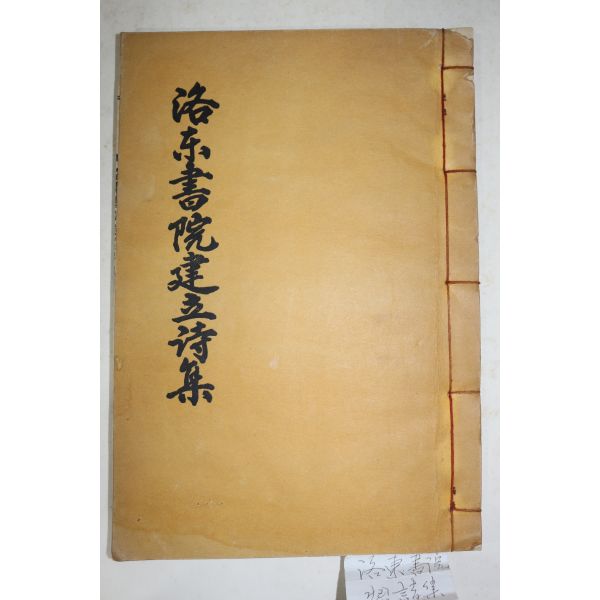 洛东書院建立诗集
洛東書院
詩集